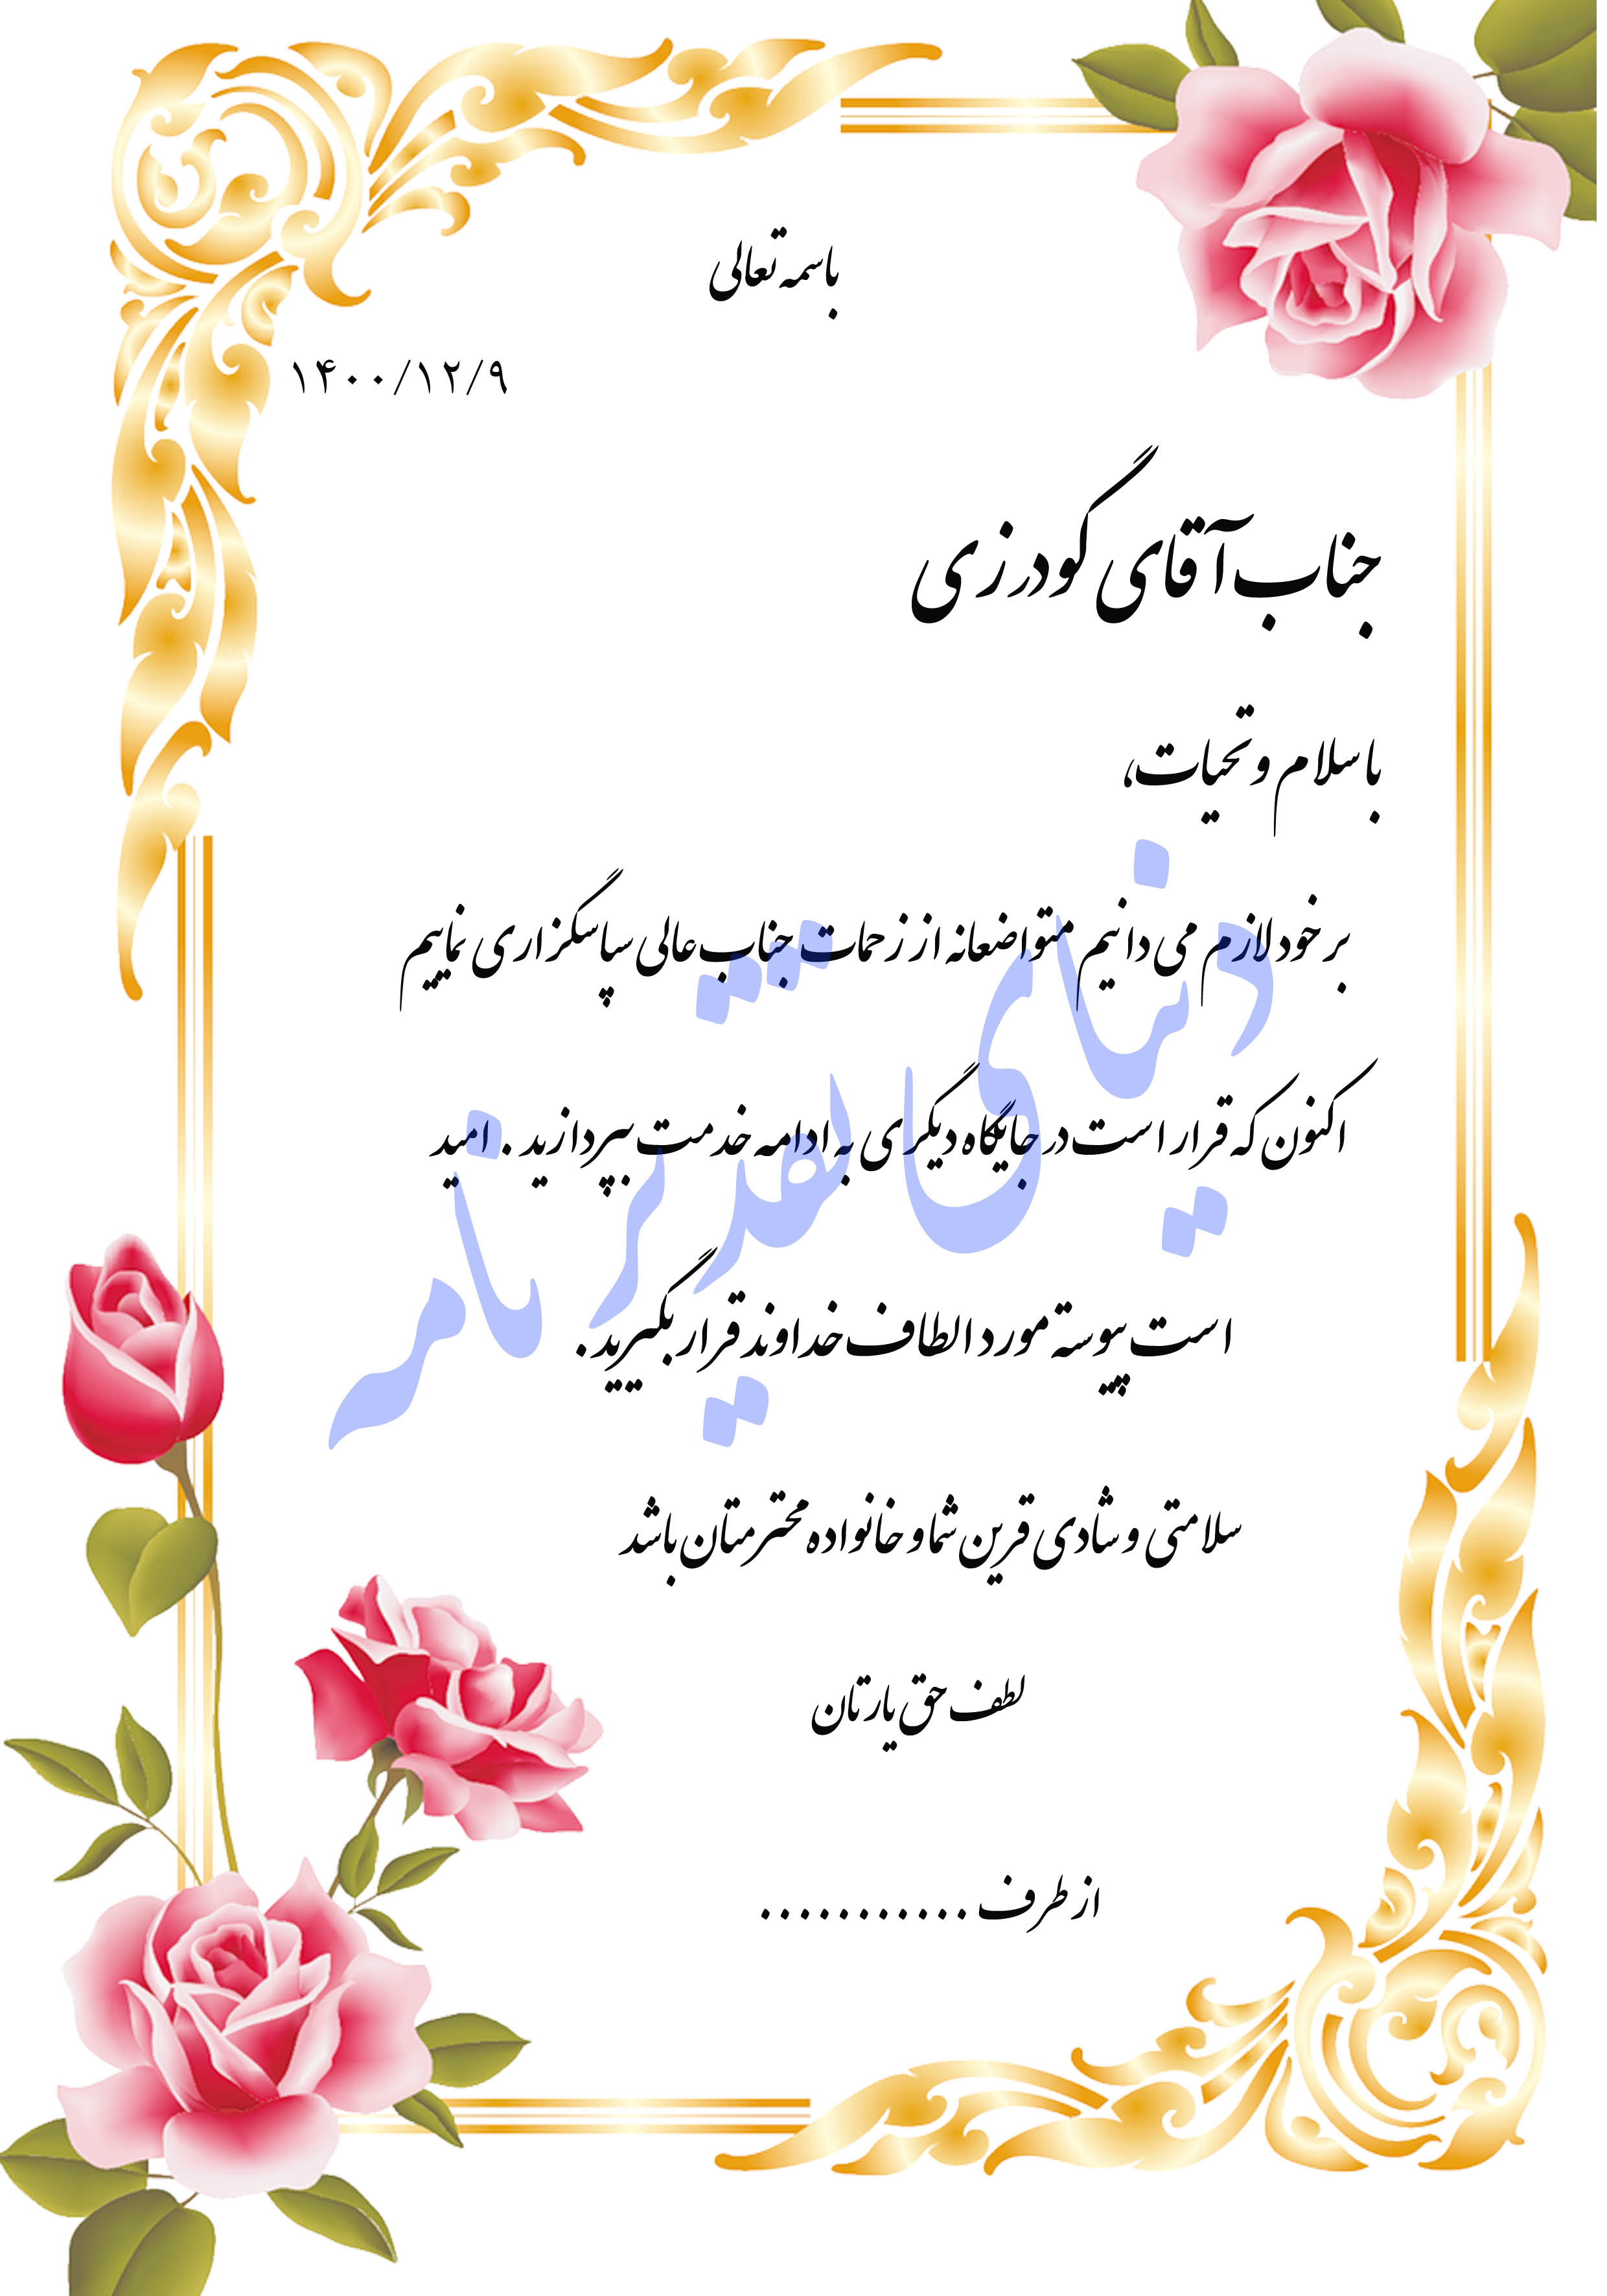 باسمه تعالی
۱۴۰۰/۱۲/۹
جناب آقای گودرزی
با سلام و تحیات،
بر خود لازم می دانیم متواضعانه از زحمات جناب عالی سپاسگزاری نماییم
اکنون که قرار است در جایگاه دیگری به ادامه خدمت بپردازید . امید
است پیوسته مورد الطاف خداوند قرار بگیرید .
سلامتی و شادی قرین شما و خانواده محترمتان باشد
لطف حق یارتان
از طرف ...........
دنیای تقدیرنامه